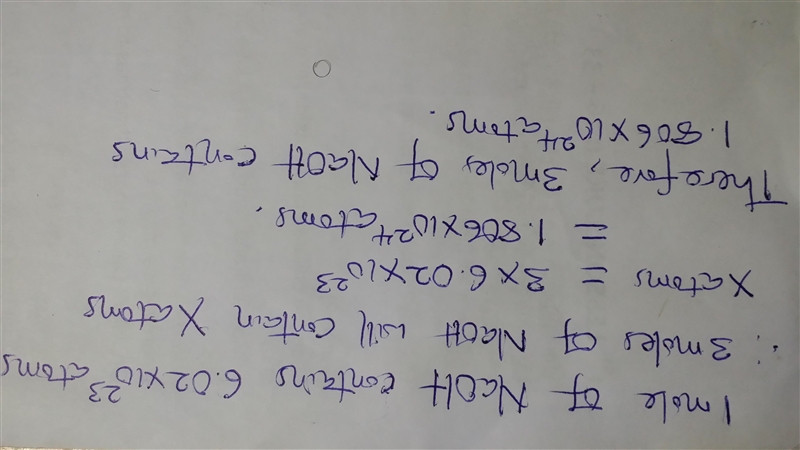 1 mole of NaOH contains 6.02×10²³ atoms
∴ 3 moles of NaOH will contain X atoms
X atoms = 3×6.02×10²³
= 1.806×10²⁴ atoms.
Therefore, 3 moles of NaOH contains
1.806×10²⁴ atoms.